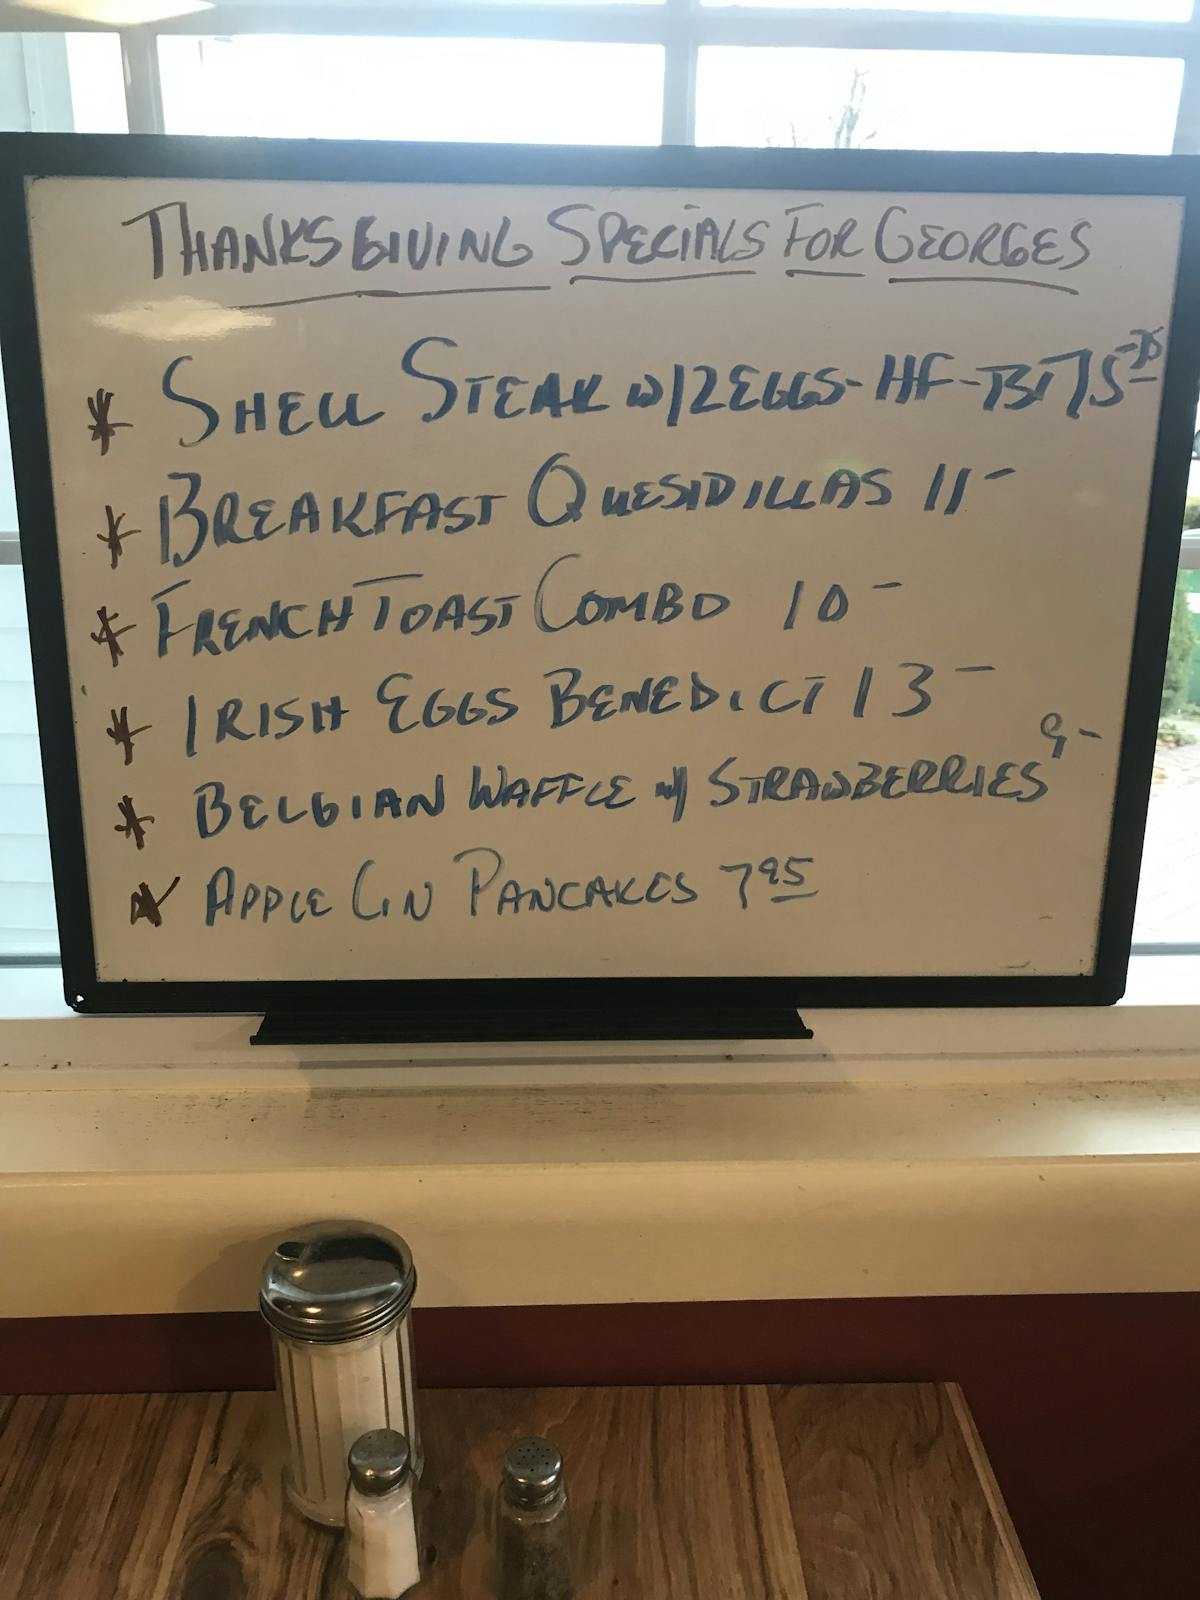 THANKSGIVING SPECIALS FOR GEORGES
* SHELL STEAK W/2 EGGS-HF-T
* BREAKFAST QUESIDILLAS 11-
* FRENCH TOAST COMBO 10-
* IRISH EGGS BENEDICT 13-
* BELGIAN WAFFLE W/ STRAWBERRIES 9-
* APPLE CIN PANCAKES 7 95